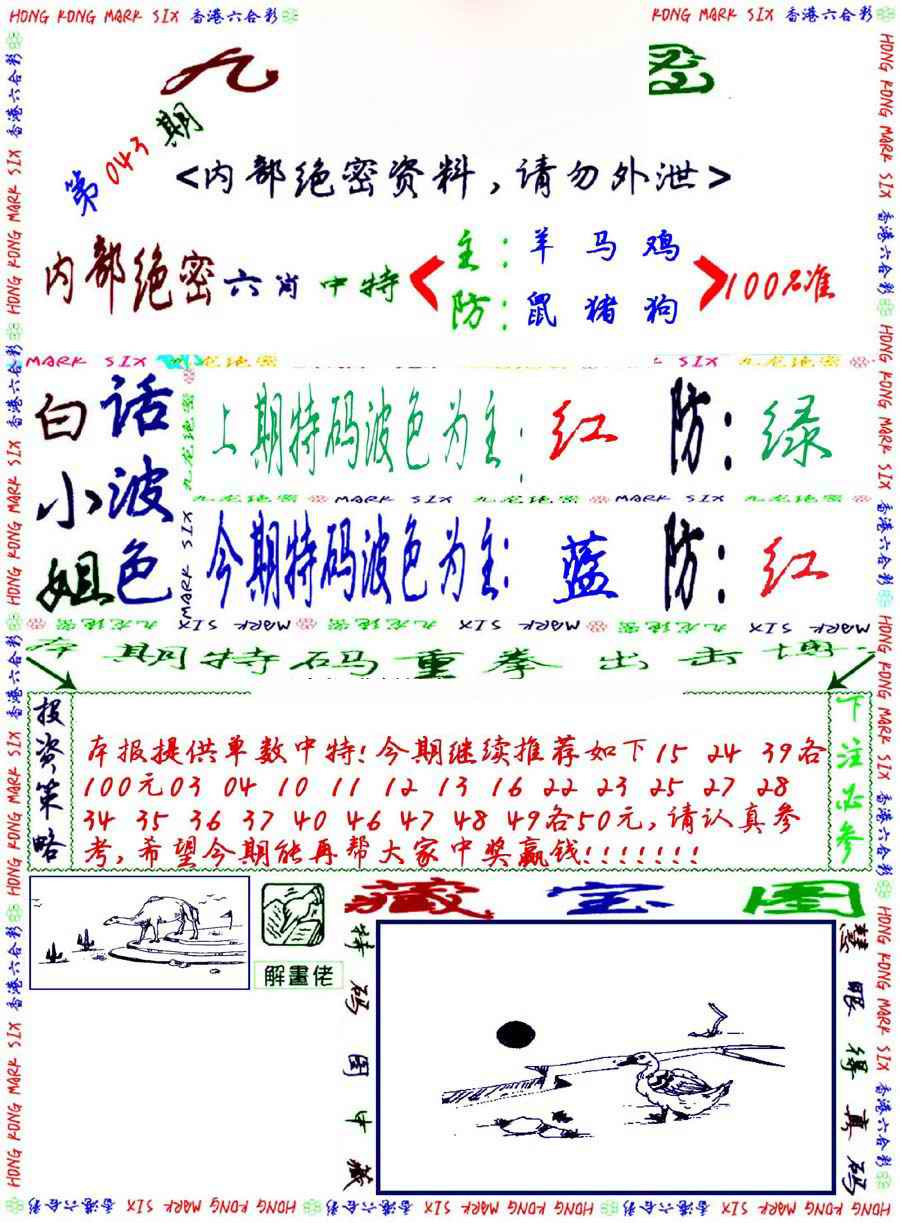 HONG KONG MARK SIX 香港六合彩
KONG MARK SIX 香港六合彩
九
密
第043期
<内部绝密资料,请勿外泄>
内部绝密六肖中特
主:羊 马 鸡
防:鼠 猪 狗
100%准
MARK SIX 九龙绝密
白话小波姐色
上期特码波色为主: 红 防: 绿
九龙绝密 MARK SIX 九龙绝密 MARK SIX 九龙绝密
今期特码波色为主: 蓝 防: 红
MARK SIX 九龙绝密 MARK SIX 九龙绝密 MARK SIX 九龙绝密
本期特码重拳出击
投资策略
本报提供单数中特!今期继续推荐如下15 24 39各
100元03 04 10 11 12 13 16 22 23 25 27 28
34 35 36 37 40 46 47 48 49各50元,请认真参
考,希望今期能再帮大家中奖赢钱!!!!!!!
下注必参
藏宝图
解畫佬
特码图中藏
慧眼得真码
HONG KONG MARK SIX 香港六合彩